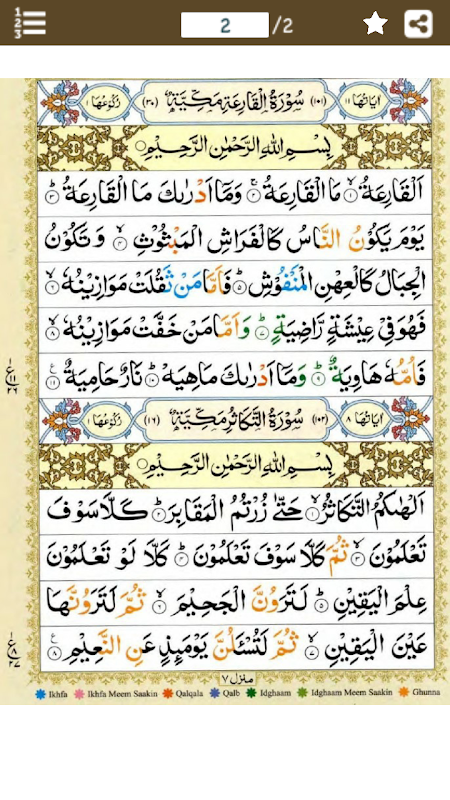 1 2 3
2 /2
اٰيَاتُهَا ١١ (١٠١) سُوْرَةُ الْقَارِعَةِ مَكِّيَّةٌ (٣٠) رُكُوْعُهَا ١
بِسْمِ اللّٰهِ الرَّحْمٰنِ الرَّحِيْمِ
اَلْقَارِعَةُ ۙ ١ مَا الْقَارِعَةُ ۚ ٢ وَمَآ اَدْرٰىكَ مَا الْقَارِعَةُ ؕ ٣
يَوْمَ يَكُوْنُ النَّاسُ كَالْفَرَاشِ الْمَبْثُوْثِ ۙ ٤ وَ تَكُوْنُ
الْجِبَالُ كَالْعِهْنِ الْمَنْفُوْشِ ؕ ٥ فَاَمَّا مَنْ ثَقُلَتْ مَوَازِيْنُهٗ ۙ ٦
فَهُوَ فِيْ عِيْشَةٍ رَّاضِيَةٍ ؕ ٧ وَاَمَّا مَنْ خَفَّتْ مَوَازِيْنُهٗ ۙ ٨
فَاُمُّهٗ هَاوِيَةٌ ؕ ٩ وَمَآ اَدْرٰىكَ مَاهِيَهْ ؕ ١٠ نَارٌ حَامِيَةٌ ۧ ١١
اٰيَاتُهَا ٨ (١٠٢) سُوْرَةُ التَّكَاثُرِ مَكِّيَّةٌ (١٦) رُكُوْعُهَا ١
بِسْمِ اللّٰهِ الرَّحْمٰنِ الرَّحِيْمِ
اَلْهٰىكُمُ التَّكَاثُرُ ۙ ١ حَتّٰى زُرْتُمُ الْمَقَابِرَ ؕ ٢ كَلَّا سَوْفَ
تَعْلَمُوْنَ ۙ ٣ ثُمَّ كَلَّا سَوْفَ تَعْلَمُوْنَ ؕ ٤ كَلَّا لَوْ تَعْلَمُوْنَ
عِلْمَ الْيَقِيْنِ ؕ ٥ لَتَرَوُنَّ الْجَحِيْمَ ۙ ٦ ثُمَّ لَتَرَوُنَّهَا
عَيْنَ الْيَقِيْنِ ۙ ٧ ثُمَّ لَتُسْـَٔلُنَّ يَوْمَئِذٍ عَنِ النَّعِيْمِ ۧ ٨
منزل ٧
Ikhfa Ikhfa Meem Saakin Qalqala Qalb Idghaam Idghaam Meem Saakin Ghunna